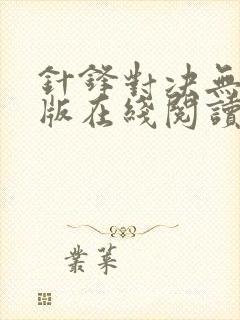 針鋒對決無
版在綫閱讀
業萊